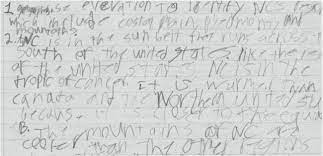 1. use elevation to identify NCS
which include costal plain, piedmonts and
mountains?
2. NC is in the sun belt that runs across
south of the united states, like the rest
of the united states NC is in the
tropic of cancer. It is warmer than
canada and the Northern united sta
becaus it is closer to the equa
B. The mountains of NC are
cooler than the other regions